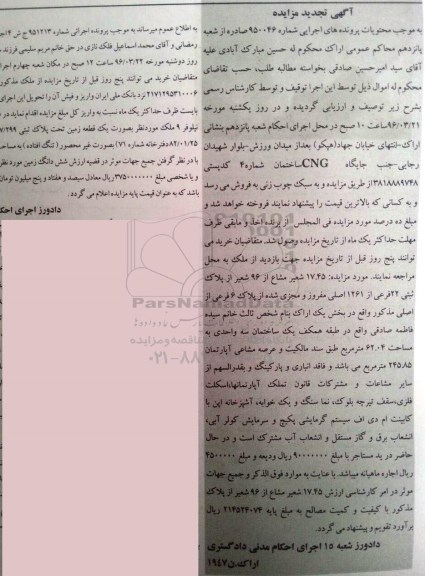 آگهی تجدید مزایده
به موجب محتویات پرونده های اجرایی شماره ۹۵۰۰۴۶ صادره از شعبه
پانزدهم محاکم عمومی اراک محکوم له حسین مبارک آبادی علیه
آقای سید امیرحسین صادقی بخواسته مطالبه طلب، حسب تقاضای
محکوم له اموال ذیل توسط این اجرا توقیف و توسط کارشناس رسمی
بشرح زیر توصیف و ارزیابی گردیده و در روز یکشنبه مورخه
۹۶/۰۳/۲۱ ساعت ۱۰ صبح در محل اجرای احکام شعبه پانزدهم بنشانی
اراک-انتهای خیابان جهاد(هپکو) بعداز میدان ورزش-بلوار شهیدان
رجایی-جنب جایگاه CNG ساختمان شماره۴ کدپستی
۳۸۱۸۸۸۹۷۴۸ از طریق مزایده و به سبک چوب زنی به فروش می رسد
و به کسانی که بالاترین قیمت را پیشنهاد نمایند فروخته خواهد شد و
مبلغ ده درصد مورد مزایده فی المجلس از برنده اخذ و مابقی ظرف
مهلت حداکثر یک ماه از تاریخ مزایده وصول باشد. متقاضیان خرید می
توانند پنج روز قبل از تاریخ مزایده جهت بازدید از ملک به محل
مراجعه نمایند. مورد مزایده: ۱۷.۴۵ شعیر مشاع از ۹۶ شعیر از پلاک
ثبتی ۲۲فرعی از ۱۲۶۱ اصلی مفروز و مجزی شده از پلاک ۶ فرعی از
اصلی مذکور واقع در بخش یک اراک بنام شخص ثالث خانم سیده
فاطمه صادقی واقع در طبقه همکف یک ساختمان سه واحدی به
مساحت ۶۲.۰۴ مترمربع طبق سند مالکیت و عرصه مشاعی آپارتمان
۲۴۵.۸۵ مترمربع می باشد و فاقد انباری و پارکینگ و بقدرالسهم از
سایر مشاعات و مشترکات قانون تملک آپارتمانها،اسکلت
فلزی،سقف تیرچه بلوک، نما سنگ و یک خوابه، آشپزخانه اپن با
کابینت ام دی اف سیستم گرمایشی پکیج و سرمایش کولر آبی،
انشعاب برق و گاز مستقل و انشعاب آب مشترک است و در حال
حاضر در ید مستاجر با مبلغ ۹۰۰۰۰۰۰۰ ریال ودیعه و مبلغ ۴۵۰۰۰۰۰
ریال اجاره ماهیانه میباشد. با عنایت به موارد فوق الذکر و جمیع جهات
موثر در امر کارشناسی ارزش ۱۷.۴۵ شعیر مشاع از ۹۶ شعیر از پلاک
مذکور با کیفیت و کمیت مصالح به مبلغ پایه ۲۱۴۵۲۴۰۷۴ ریال
برآورد تقویم و پیشنهاد می گردد.
دادورز شعبه ۱۵ اجرای احکام مدنی دادگستری
اراک.ن۱۹۴۷
به اطلاع عموم میرساند به موجب پرونده اجرائی شماره ۹۵۱۲۱۳
رمضانی و آقای محمد اسماعیل فلک نازی در حق خانم مریم سلیمی فرزند
روز دوشنبه مورخه ۹۶/۰۳/۲۲ ساعت ۱۲ صبح در مکان شعبه چهارم اجرای
متقاضیان خرید می توانند پنج روز قبل از تاریخ مزایده از ملک مذکور
۲۱۷۱۲۹۵۲۱۰۰۶ نزد بانک ملی ایران واریز و فیش آن را تحویل این اجرای
بایست ظرف حداکثر یک ماه نسبت به واریز کل مبلغ مزایده اقدام نماید در
نیلوفر ۹ ملک موردنظر بصورت یک قطعه زمین تحت پلاک ثبتی ۷/۲۹۹
۸۲/۰۱/۲۵دفترخانه شماره ۷۱) بصورت غیر محصور
با در نظر گرفتن جمیع جهات موثر در قضیه ارزش شش دانگ زمین مورد نظر
و یا شخصی مبلغ ۳۷۵۰۰۰۰۰۰۰ریال معادل سیصد و هفتاد و پنج میلیون تومان
باشد که به عنوان قیمت پایه مزایده اعلام می گردد.
دادورز اجرای احکام
ParsNamadData
۰۲۱-۸۸